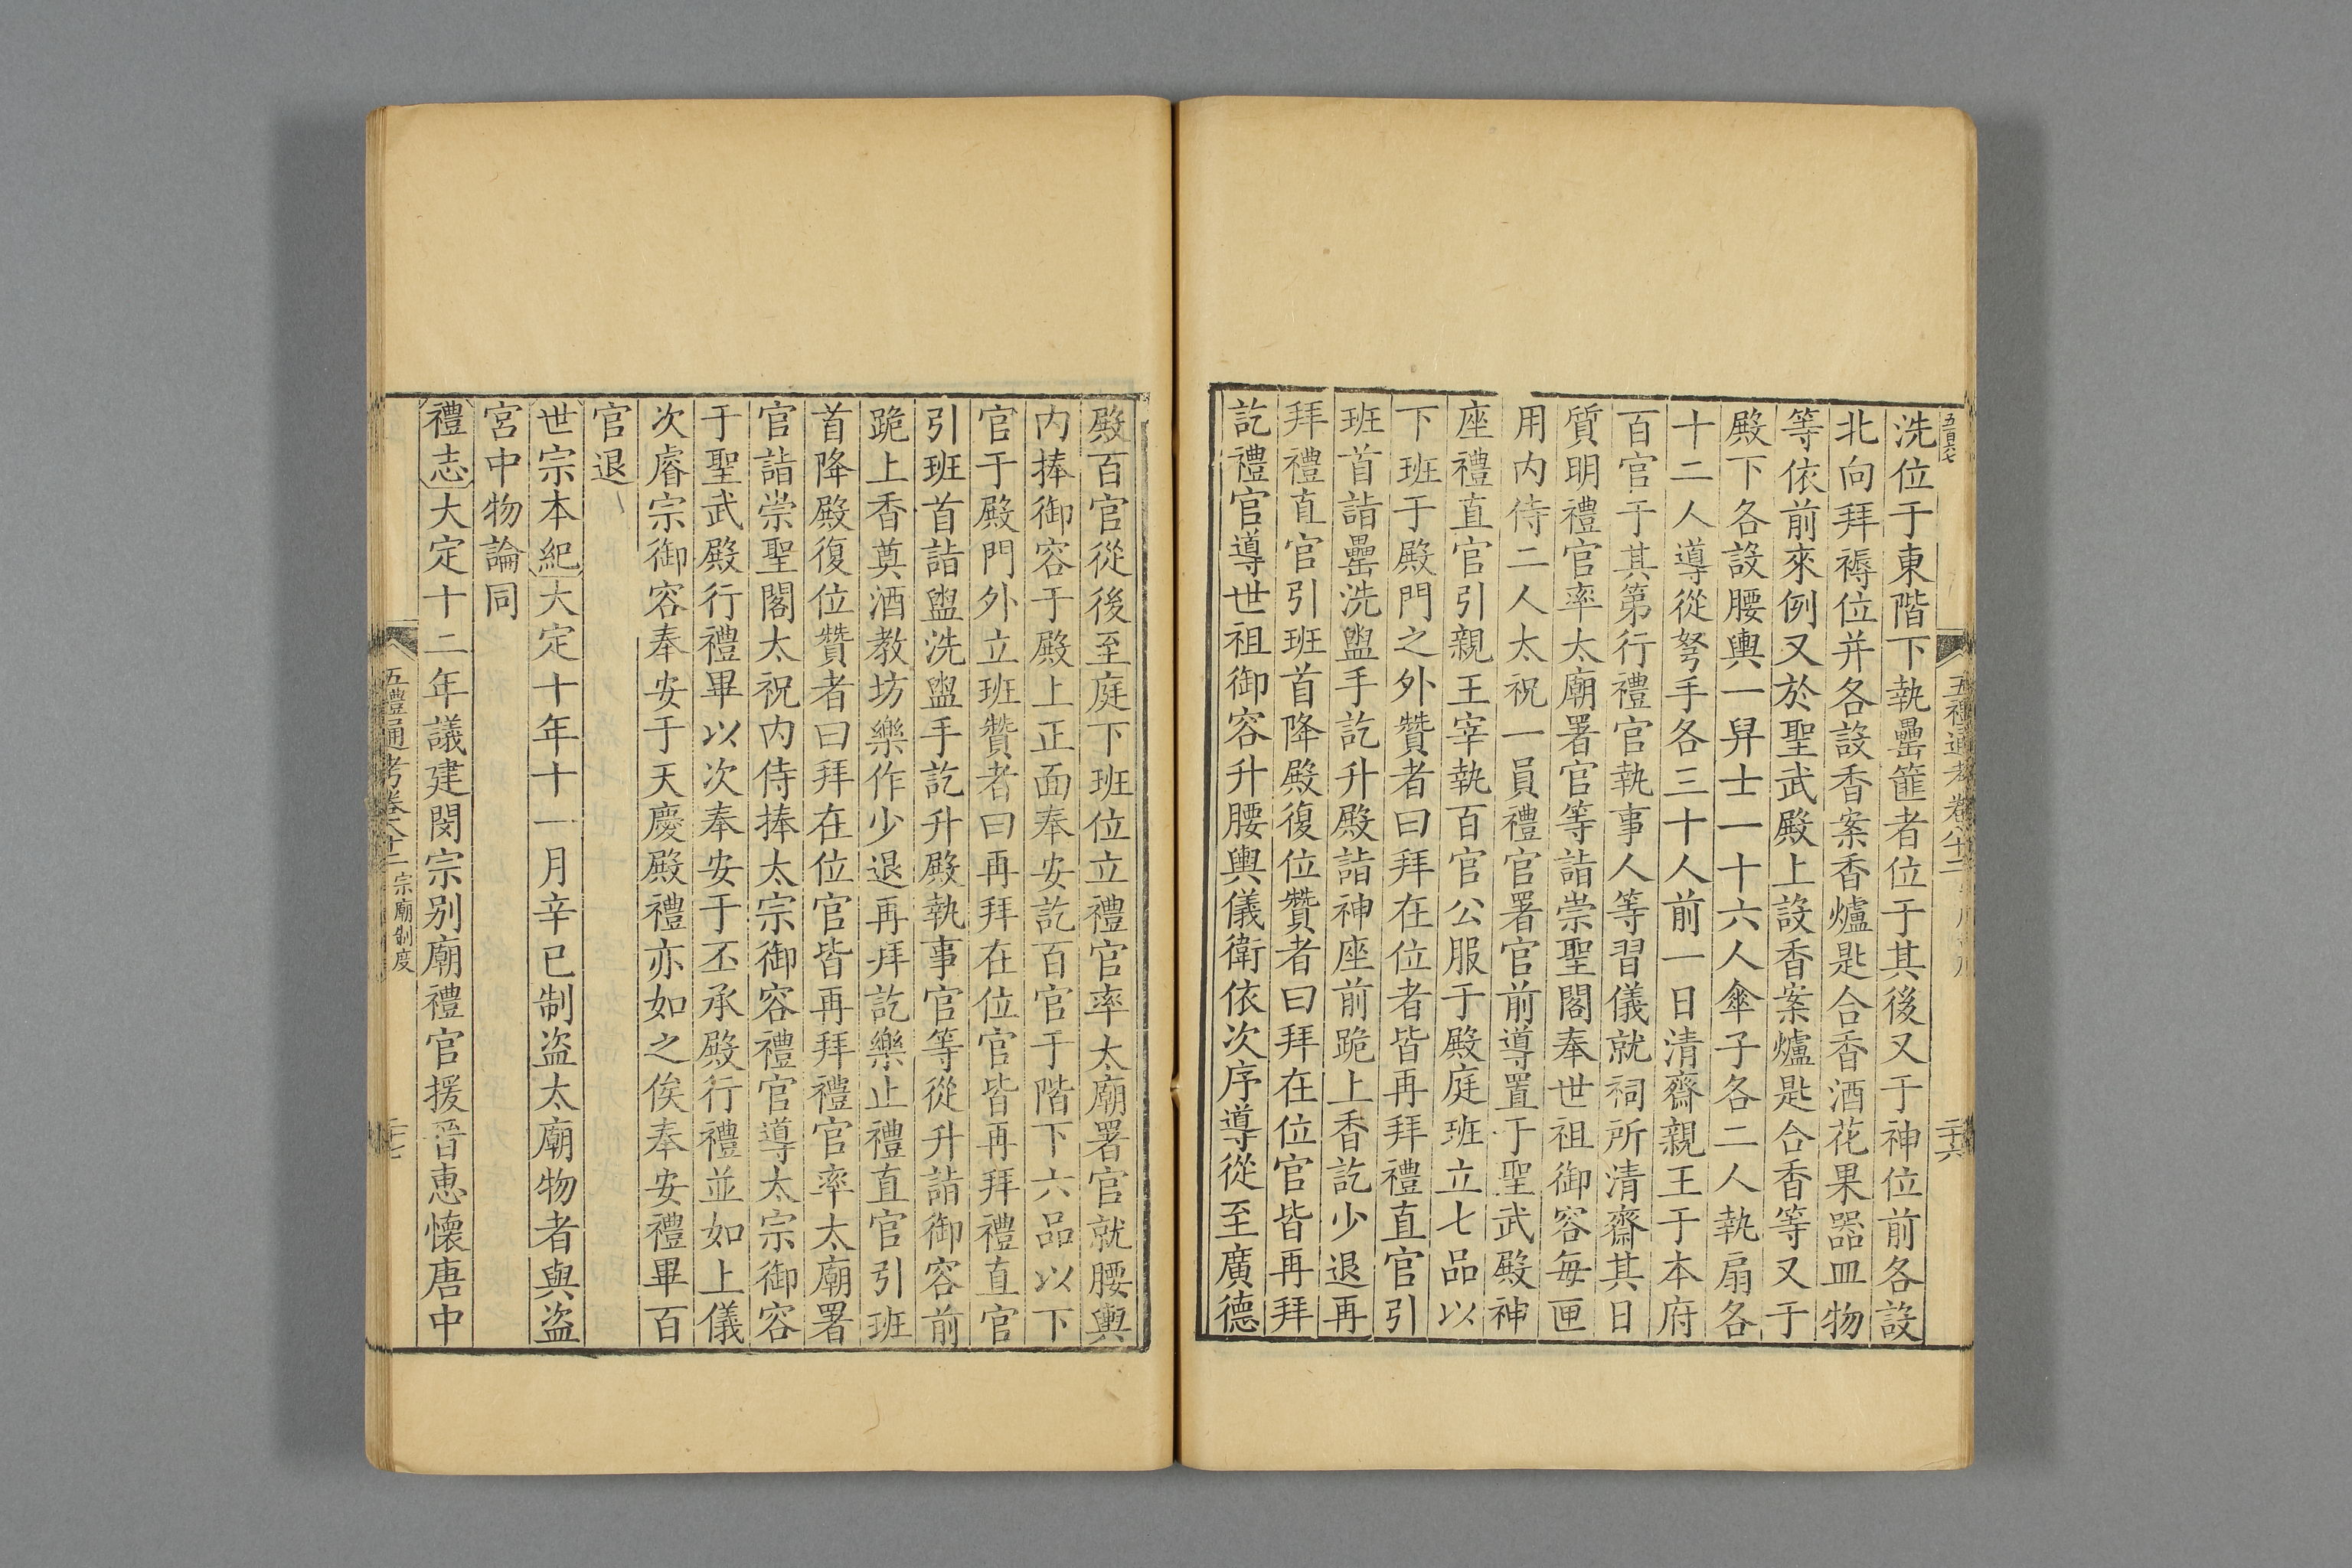 五百六七
五禮通考卷八十二
二十六
洗位于東階下執罍篚者位于其後又于神位前各設
北向拜褥位并各設香案香爐匙合香酒花果器皿物
等依前來例又於聖武殿上設香案爐匙合香等又于
殿下各設腰輿一舁士一十六人傘子各二人執扇各
十二人導從弩手各三十人前一日清齋親王于本府
百官于其第行禮官執事人等習儀就祠所清齋其日
質明禮官率太廟署官等詣崇聖閣奉世祖御容每匣
用内侍二人太祝一員禮官署官前導置于聖武殿神
座禮直官引親王宰執百官公服于殿庭班立七品以
下班于殿門之外贊者曰拜在位者皆再拜禮直官引
班首詣罍洗盥手訖升殿詣神座前跪上香訖少退再
拜禮直官引班首降殿復位贊者曰拜在位官皆再拜
訖禮官導世祖御容升腰輿儀衛依次序導從至廣德
殿百官從後至庭下班位立禮官率太廟署官就腰輿
内捧御容于殿上正面奉安訖百官于階下六品以下
官于殿門外立班贊者曰再拜在位官皆再拜禮直官
引班首詣盥洗盥手訖升殿執事官等從升詣御容前
跪上香奠酒教坊樂作少退再拜訖樂止禮直官引班
首降殿復位贊者曰拜在位官皆再拜禮官率太廟署
官詣崇聖閣太祝内侍捧太宗御容禮官導太宗御容
于聖武殿行禮畢以次奉安于丕承殿行禮並如上儀
次睿宗御容奉安于天慶殿禮亦如之俟奉安禮畢百
官退
世宗本紀大定十年十一月辛巳制盜太廟物者與盜
宮中物論同
禮志大定十二年議建閔宗别廟禮官援晉惠懷唐中
五禮通考卷八十二 宗廟制度
二十七